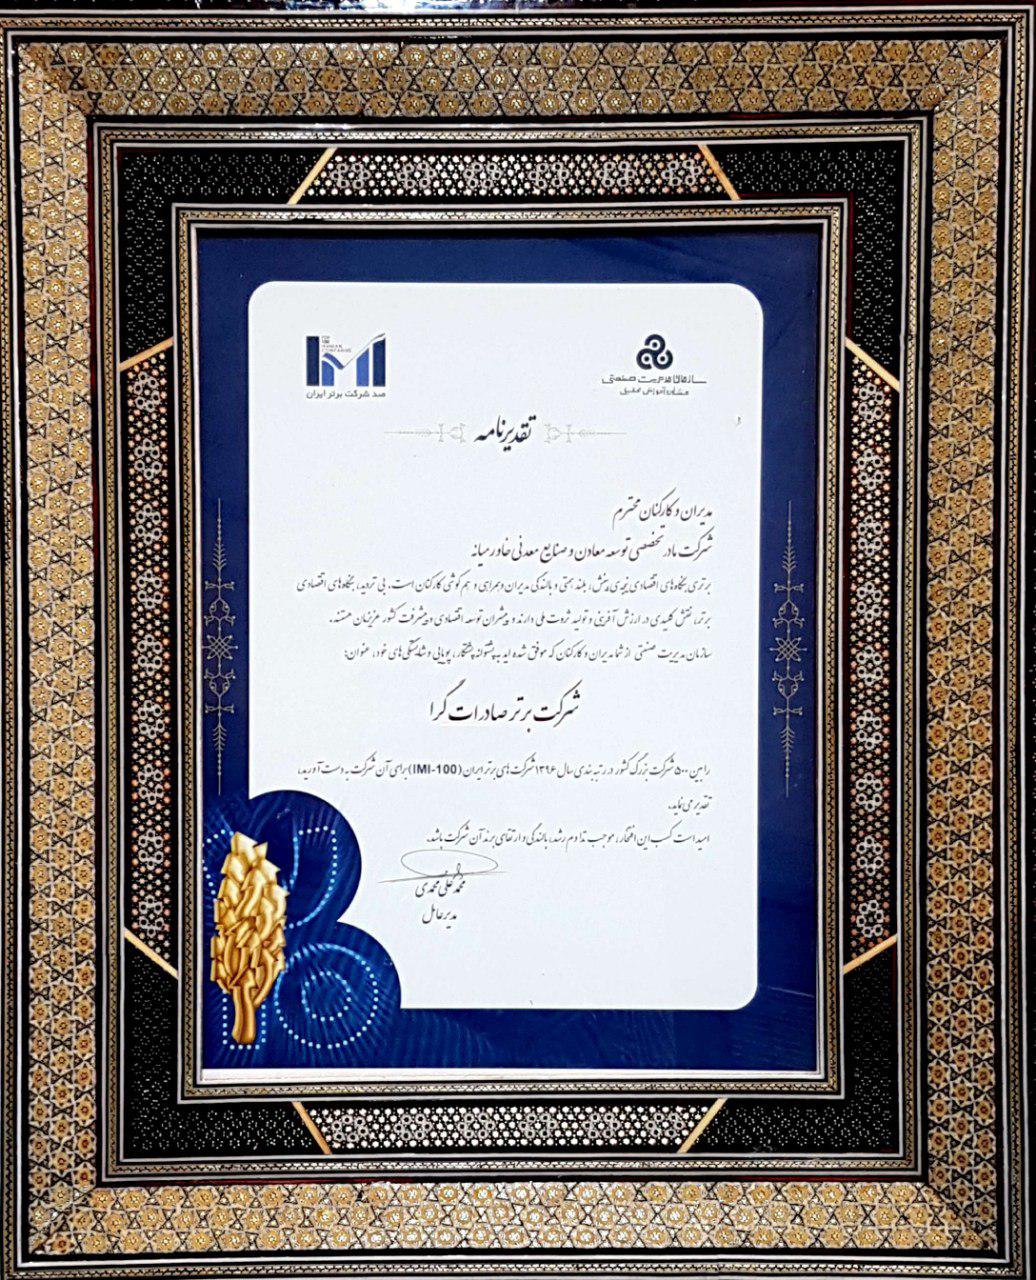 TOP
100
IRANIAN
COMPANIES
صد شرکت برتر ایران
سازمان مدیریت صنعتی
مشاوره آموزش تحقیق
تقدیرنامه
مدیران و کارکنان محترم
شرکت مادر تخصصی توسعه معادن و صنایع معدنی خاورمیانه
برتری بنگاه‌های اقتصادی نتیجه‌ی منش، بلند همتی و بالندگی مدیران و همراهی و هم کوشی کارکنان است. بی تردید، بنگاه‌های اقتصادی
برتر، نقش کلیدی در ارزش آفرینی و تولید ثروت ملی دارند و پیشران توسعه اقتصادی و پیشرفت کشور عزیزمان هستند.
سازمان مدیریت صنعتی از شما مدیران و کارکنان که موفق شده اید به پشتوانه پشتکار، پویایی و شایستگی‌های خود، عنوان:
شرکت برتر صادرات گرا
را بین ۵۰۰ شرکت بزرگ کشور در رتبه بندی سال ۱۳۹۶ شرکت های برتر ایران (IMI-100) برای آن شرکت به دست آورید،
تقدیر می نماید.
امید است کسب این افتخار، موجب تداوم رشد، بالندگی و ارتقای برند آن شرکت باشد.
محمد علی محمدی
مدیر عامل